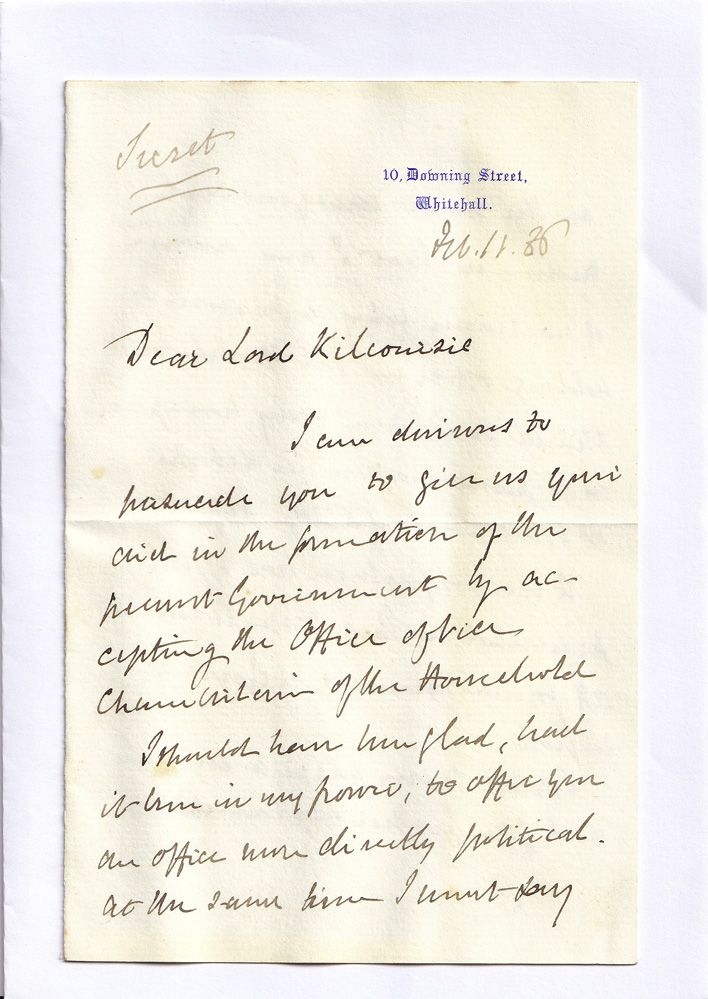 Secret
10, Downing Street,
Whitehall.
Feb. 11. 86
Dear Lord Kilcoursie
I am desirous to
persuade you to give us your
aid in the formation of the
present Government by ac-
cepting the Office of Vice
Chamberlain of the Household
I should have been glad, had
it been in my power, to offer you
an office more directly political.
At the same time I must say